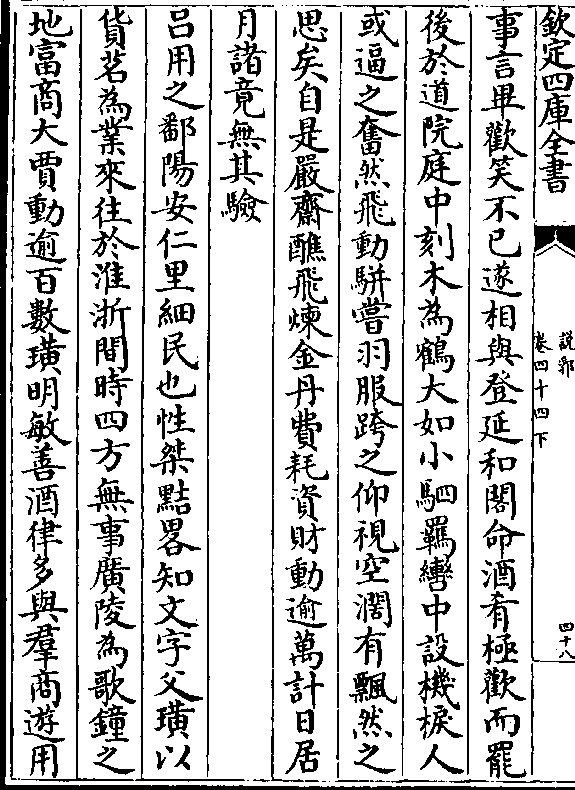 欽定四庫全書
說郛
卷四十四下
四十八
事言畢歡笑不已遂相與登延和閣命酒肴極歡而罷
後於道院庭中刻木為鶴大如小駟羈轡中設機棙人
或逼之奮然飛動駢嘗羽服跨之仰視空濶有飄然之
思矣自是嚴齋醮飛煉金丹費耗資財動逾萬計日居
月諸竟無其驗
呂用之鄱陽安仁里細民也性桀黠畧知文字父璜以
貨茗為業來往於淮浙間時四方無事廣陵為歌鐘之
地富商大賈動逾百數璜明敏善酒律多與羣商遊用